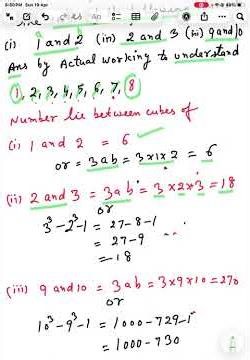 (i) 1 and 2 (ii) 2 and 3 (iii) 9 and 10
Ans by Actual working to understand
1, 2, 3, 4, 5, 6, 7, 8
Number lie between cubes of
(i) 1 and 2 = 6
or = 3ab = 3×1×2 = 6
(ii) 2 and 3 = 3ab = 3×2×3 = 18
or
3³-2³-1 = 27-8-1
= 27-9
= 18
(iii) 9 and 10 = 3ab = 3×9×10 = 270
or
10³-9³-1 = 1000-729-1
= 1000-730